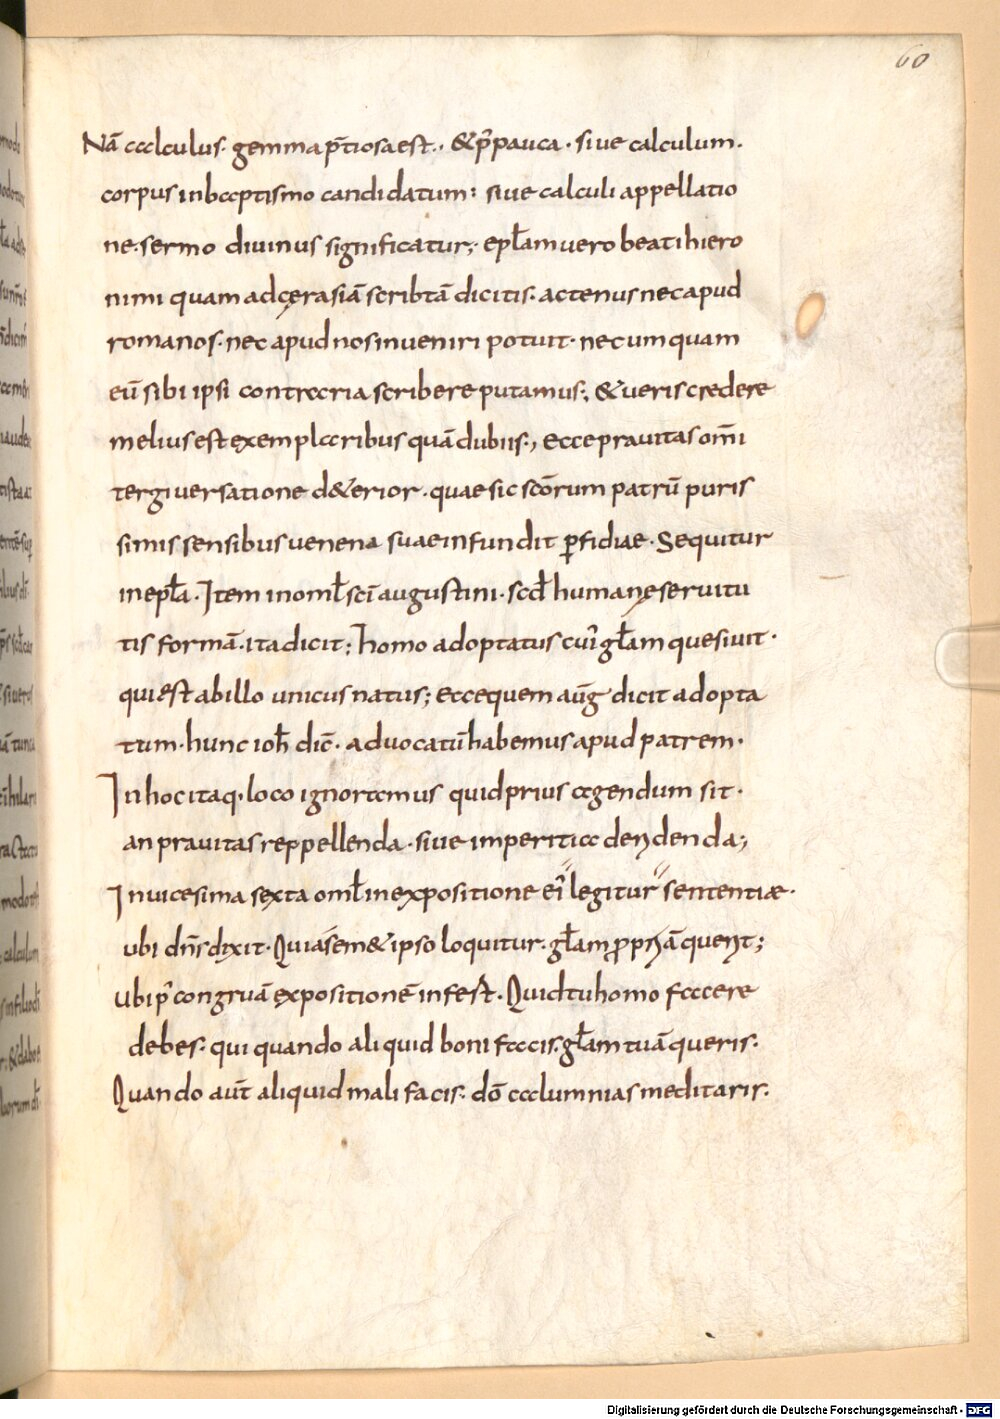 60
Nā calculus· gemma p̄tiosa est·· & p᷒pauca· siue calculum·
corpus in baptismo candidatum: siue calculi appellatio
ne· sermo diuinus significatur;· epl̄am uero beati hiero
nimi quam ad cęrasiā scribtā dicitis· actenus nec apud
romanos· nec apud nos inueniri potuit· nec umquam
eū sibi ipsi contraria scribere putamus;· & ueris credere
melius est exemplaribus quā dubiis·, ecce prauitas om̄i
tergiuersatione d&erior· quae sic sc̄orum patrū puris
simis sensibus uenena suae infundit ꝑfidiae· Sequitur
in epl̄a· Item in omł sc̄i augustini· scđ humanę seruitu
tis formā· ita dicit; homo adoptatus cui᷒ gl̄am quesiuit·
qui est ab illo unicus natus; ecce quem aug̅ dicit adopta
tum· hunc ioħ dic̄· aduocatū habemus apud patrem·
In hoc itaq· loco ignoramus quid prius agendum sit·
an prauitas reppellenda· siue imperitia deridenda;
In uicesima sexta omł in expositione ei᷒ legitur sententiæ·
ubi dn̄s dixit· Qui a sem&ipso loquitur· gl̄am ꝓpriā querit;
Ubi p᷒ congruā expositionē infest· Quid tu homo facere
debes· qui quando aliquid boni facis· gl̄am tuā queris·
Quando aut̄ aliquid mali facis· dō calumnias meditaris·
Digitalisierung gefördert durch die Deutsche Forschungsgemeinschaft - DFG